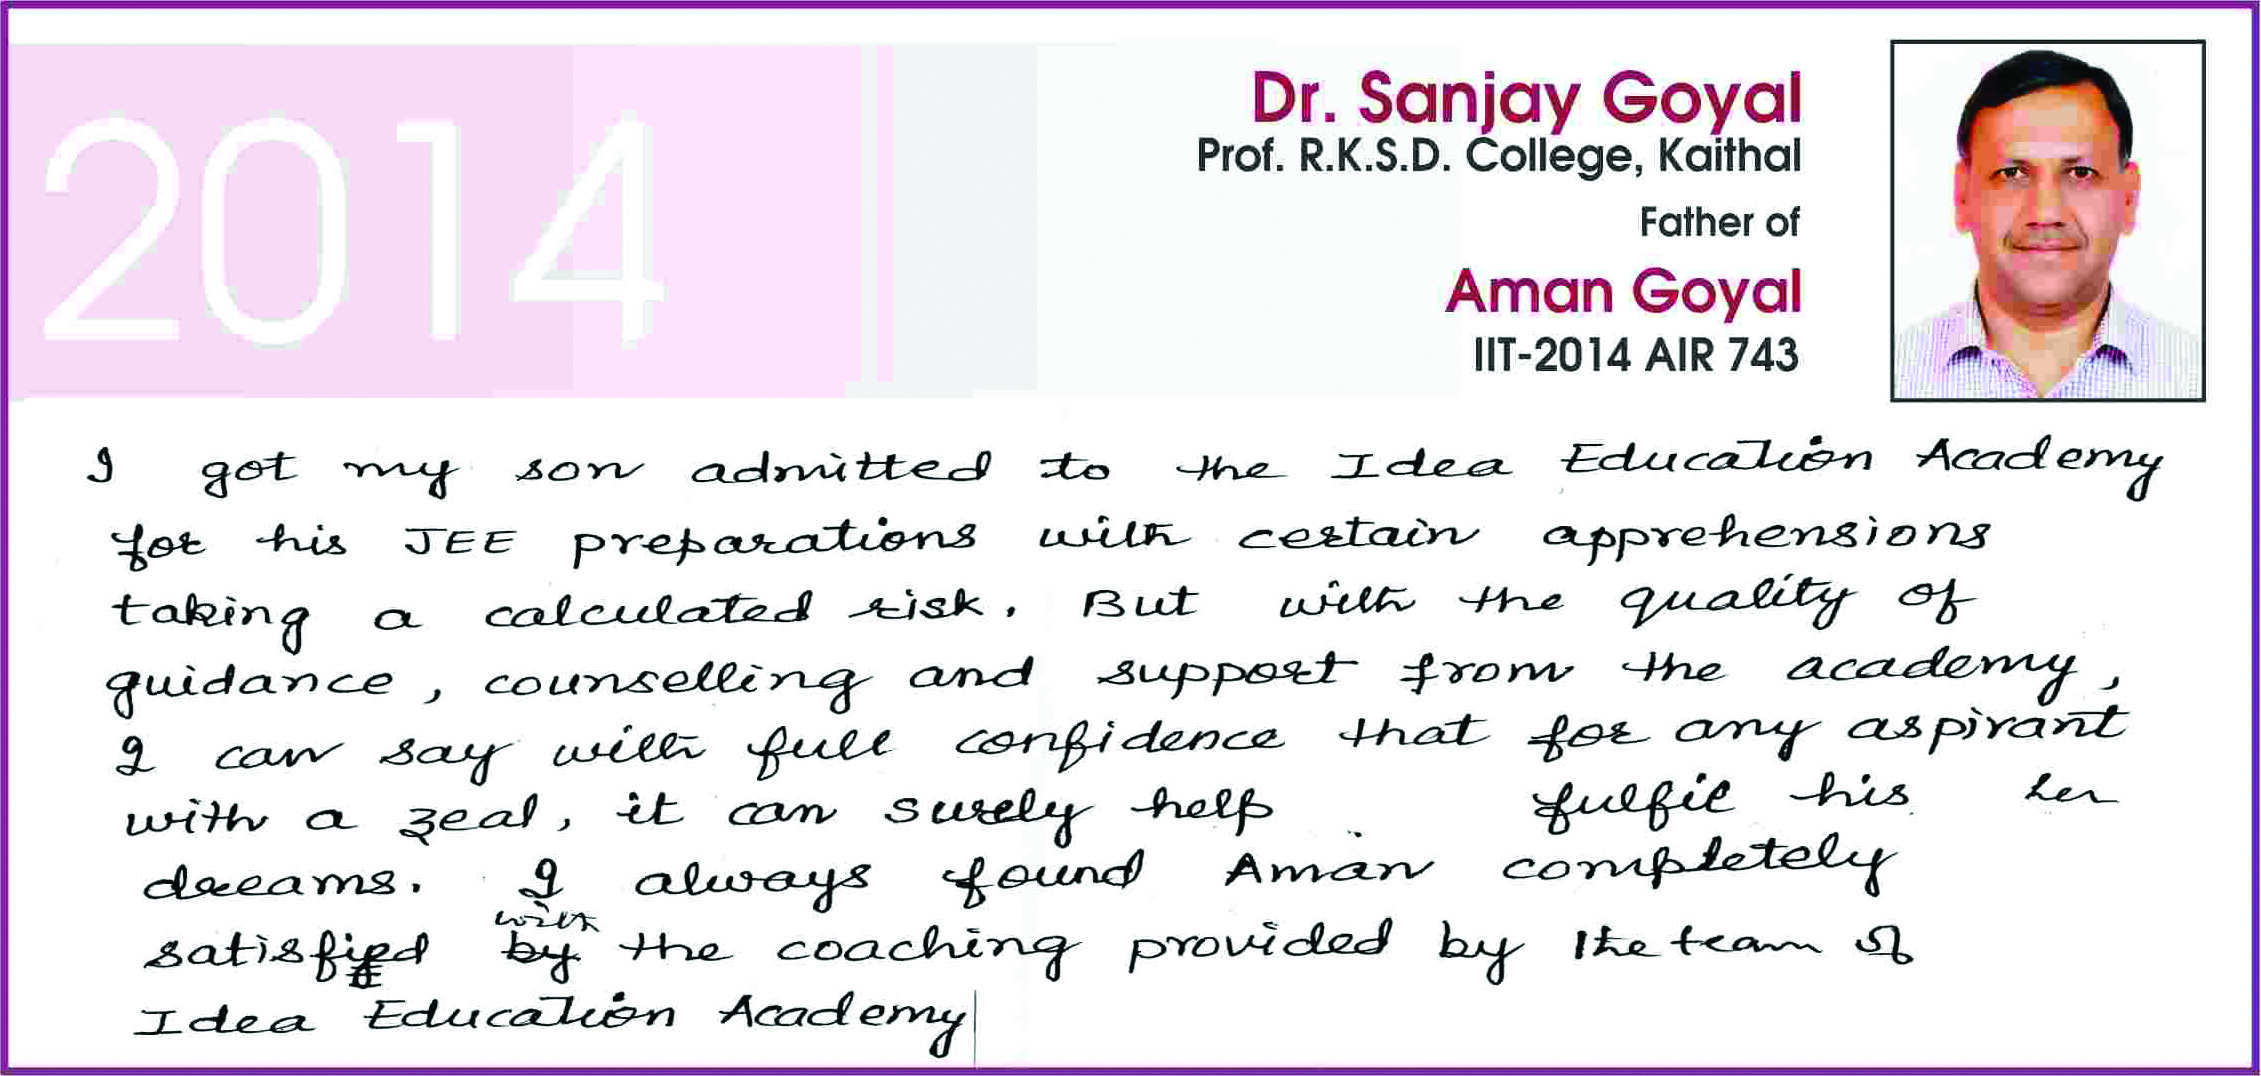 2014
Dr. Sanjay Goyal
Prof. R.K.S.D. College, Kaithal
Father of
Aman Goyal
IIT-2014 AIR 743
I got my son admitted to the Idea Education Academy
for his JEE preparations with certain apprehensions
taking a calculated risk. But with the quality of
guidance, counselling and support from the academy,
I can say with full confidence that for any aspirant
with a zeal, it can surely help fulfil his her
dreams. I always found Aman completely
with
satisfied by the coaching provided by the team of
Idea Education Academy